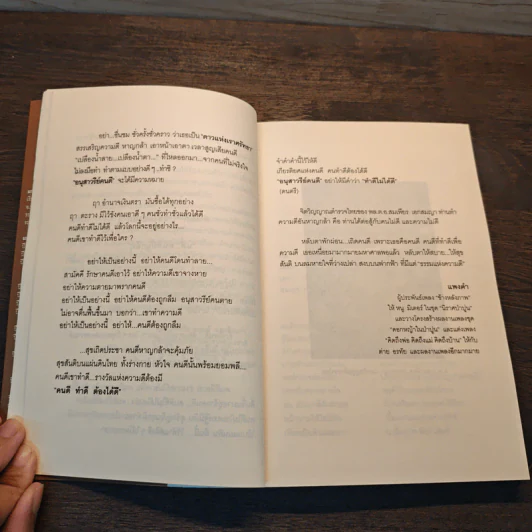 อย่า...ชื่นชม ชั่วครั้งชั่วคราว ว่าเธอเป็น "ดาวแห่งเราศรัทธา"
สรรเสริญความดี หาญกล้า เอาหน้าเอาตา เวลาสูญเสียคนดี
"เปลืองน้ำลาย...เปลืองน้ำตา..." ที่ไหลออกมา...จากคนที่ไม่จริงใจ
ไม่ลงมือทำ ทำตามแบบอย่างดี ๆ...ทำซิ ?
"อนุสาวรีย์คนดี" จะได้มีความหมาย
ฤๅ อำนาจเงินตรา มันซื้อได้ทุกอย่าง
ฤๅ ตะราง มีไว้ขังคนเอาดี ๆ คนชั่วทำชั่วแล้วได้ดี
คนดีทำดีไม่ได้ดี แล้วโลกนี้จะอยู่อย่างไร...
คนดีเขาทำดีไว้เพื่อใคร ?
อย่าให้เป็นอย่างนี้ อย่าให้คนดีโดนทำลาย...
สามัคคี รักษาคนดีเอาไว้ อย่าให้ความดีเขาจางหาย
อย่าให้ความตายมาพรากคนดี
อย่าให้เป็นอย่างนี้ อย่าให้คนดีต้องถูกลืม อนุสาวรีย์คนตาย
ไม่อาจตื่นฟื้นขึ้นมา บอกว่า...เขาทำดี
อย่าให้เป็นอย่างนี้ อย่าให้...คนดีต้องถูกลืม
...สุขเถิดประชา คนดีหาญกล้าจะคุ้มภัย
สุขสันติบนแผ่นดินไทย ทั้งร่างกาย หัวใจ คนดีนั้นพร้อมยอมพลี...
คนดีเขาทำดี...รางวัลแห่งความดีต้องมี
"คนดี ทำดี ต้องได้ดี"
จำคำคำนี้ไว้ให้ดี
เกียรติยศแห่งคนดี คนทำดีต้องได้ดี
"อนุสาวรีย์คนดี" อย่าให้มีคำว่า "ทำดีไม่ได้ดี"
(ดนตรี)
จิตวิญญาณตำรวจไทยของ พล.ต.อ.สมเพียร เอกสมญา ท่านทำ
ความดีอันหาญกล้า คือ ท่านได้ต่อสู้กับคนไม่ดี และความไม่ดี
หลับตาพักผ่อน...เถิดคนดี เพราะเธอคือคนดี คนดีที่ทำดีเพื่อ
ความดี เธอเหนื่อยมามากมายมหาศาลพอแล้ว หลับตาให้สบาย...ให้สุข
สันติ บนลมหายใจที่ว่างเปล่า สงบบนฟากฟ้า ที่มีแต่ "ธรรมแห่งความดี"
แพงคำ
ผู้ประพันธ์เพลง "ข้างหลังภาพ"
ให้ หนู มิเตอร์ ในชุด "นิราศป่าปูน"
และวางโครงสร้างผลงานเพลงชุด
"ดอกหญ้าในป่าปูน" และแต่งเพลง
"คิดถึงพ่อ คิดถึงแม่ คิดถึงบ้าน" ให้กับ
ต่าย อรทัย และผลงานเพลงอีกมากมาย